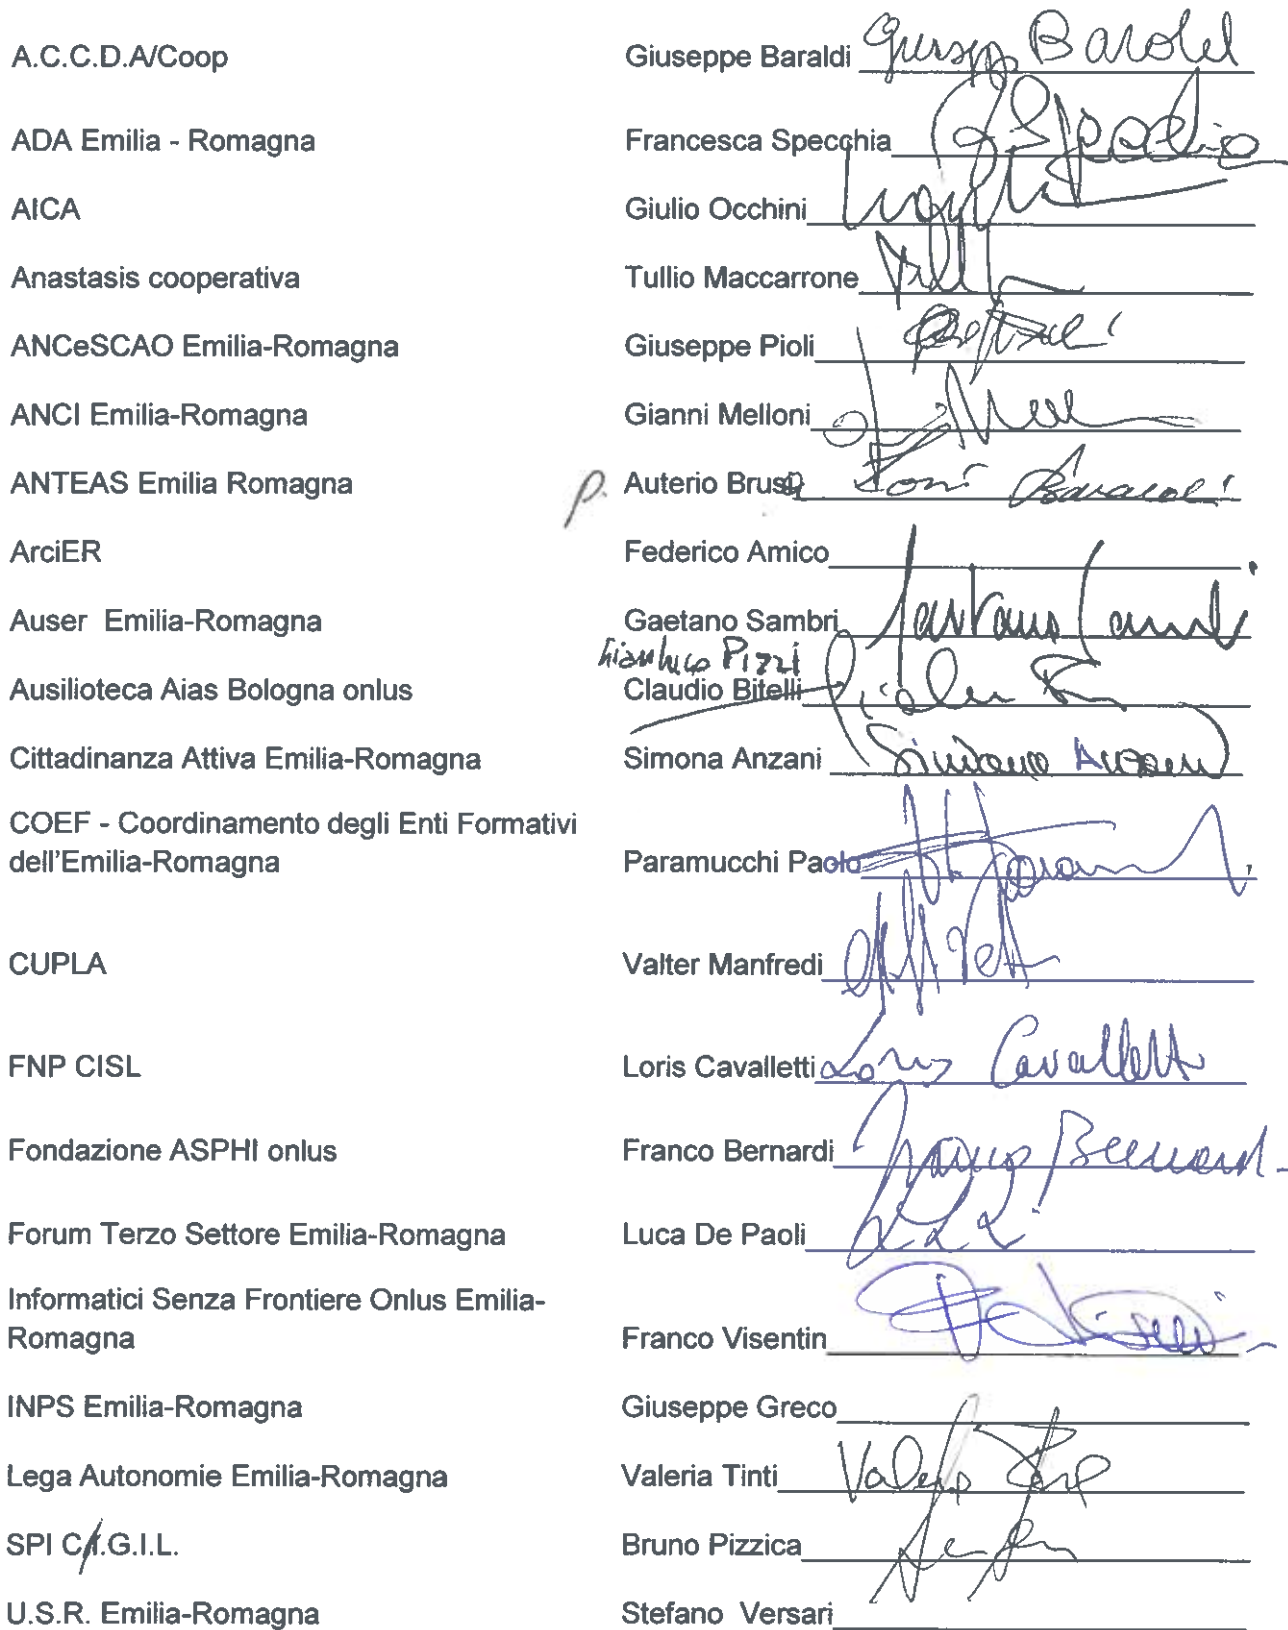 A.C.C.D.A/Coop Giuseppe Baraldi
ADA Emilia - Romagna Francesca Specchia
AICA Giulio Occhini
Anastasis cooperativa Tullio Maccarrone
ANCeSCAO Emilia-Romagna Giuseppe Pioli
ANCI Emilia-Romagna Gianni Melloni
ANTEAS Emilia Romagna p. Auterio Brusa
ArciER Federico Amico
Auser Emilia-Romagna Gaetano Sambri
Gianluca Pizzi
Ausilioteca Aias Bologna onlus Claudio Bitelli
Cittadinanza Attiva Emilia-Romagna Simona Anzani Simona Anzani
COEF - Coordinamento degli Enti Formativi
dell'Emilia-Romagna Paramucchi Paolo
CUPLA Valter Manfredi
FNP CISL Loris Cavalletti Loris Cavalletti
Fondazione ASPHI onlus Franco Bernardi Franco Bernardi
Forum Terzo Settore Emilia-Romagna Luca De Paoli
Informatici Senza Frontiere Onlus Emilia-
Romagna Franco Visentin
INPS Emilia-Romagna Giuseppe Greco
Lega Autonomie Emilia-Romagna Valeria Tinti Valeria
SPI C.G.I.L. Bruno Pizzica
U.S.R. Emilia-Romagna Stefano Versari